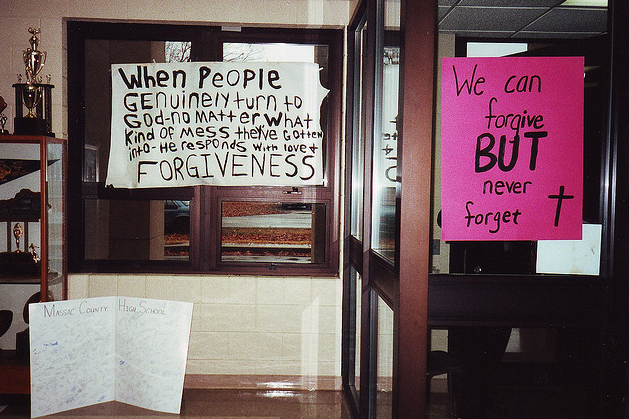 When People
GEnuinely turn to
God-no MatteR What
Kind of Mess they've Gotten
into-He responds with love +
FORGIVENESS
We can
forgive
BUT
never
forget
Massac County High School